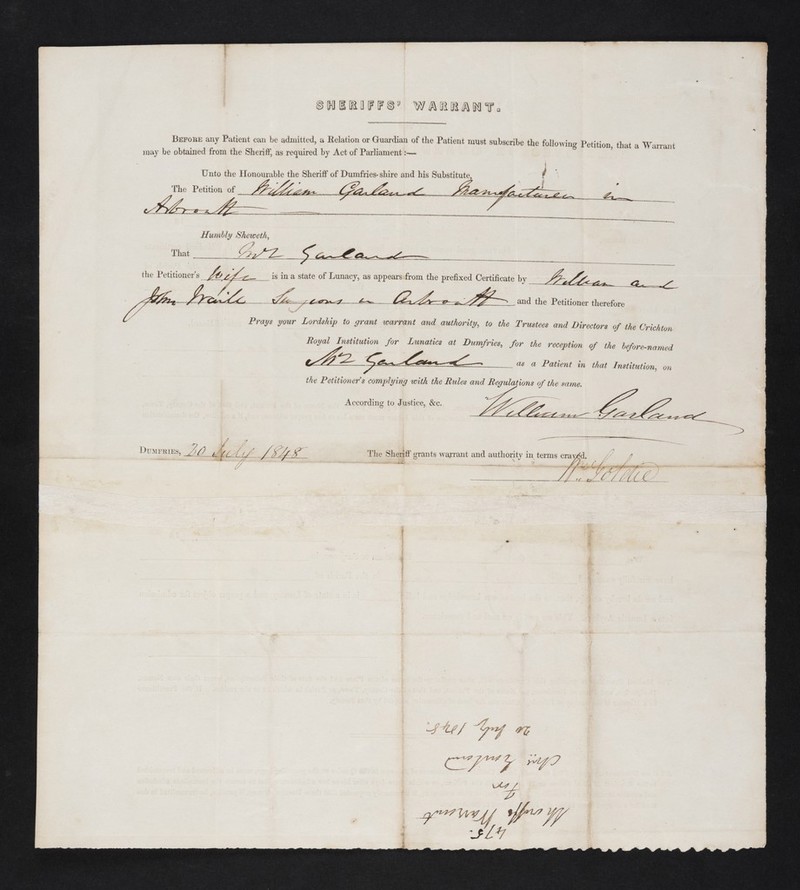 SHERIFFS' WARRANT.
BEFORE any Patient can be admitted, a Relation or Guardian of the Patient must subscribe the following Petition, that a Warrant
may be obtained from the Sheriff, as required by Act of Parliament:—
Unto the Honourable the Sheriff of Dumfries-shire and his Substitute,
The Petition of William Garland Manufacturer in
Arbroath
Humbly Sheweth,
That Mrs Garland
the Petitioner's Wife is in a state of Lunacy, as appears from the prefixed Certificate by William and
John Traill Surgeons in Arbroath and the Petitioner therefore
Prays your Lordship to grant warrant and authority, to the Trustees and Directors of the Crichton
Royal Institution for Lunatics at Dumfries, for the reception of the before-named
Mrs Garland as a Patient in that Institution, on
the Petitioner's complying with the Rules and Regulations of the same.
According to Justice, &c.
William Garland
DUMFRIES, 20 July 1848 The Sheriff grants warrant and authority in terms craved.
Wm Goldie
475.
Sheriffs Warrant
For
Mrs Garland
20 July 1848.